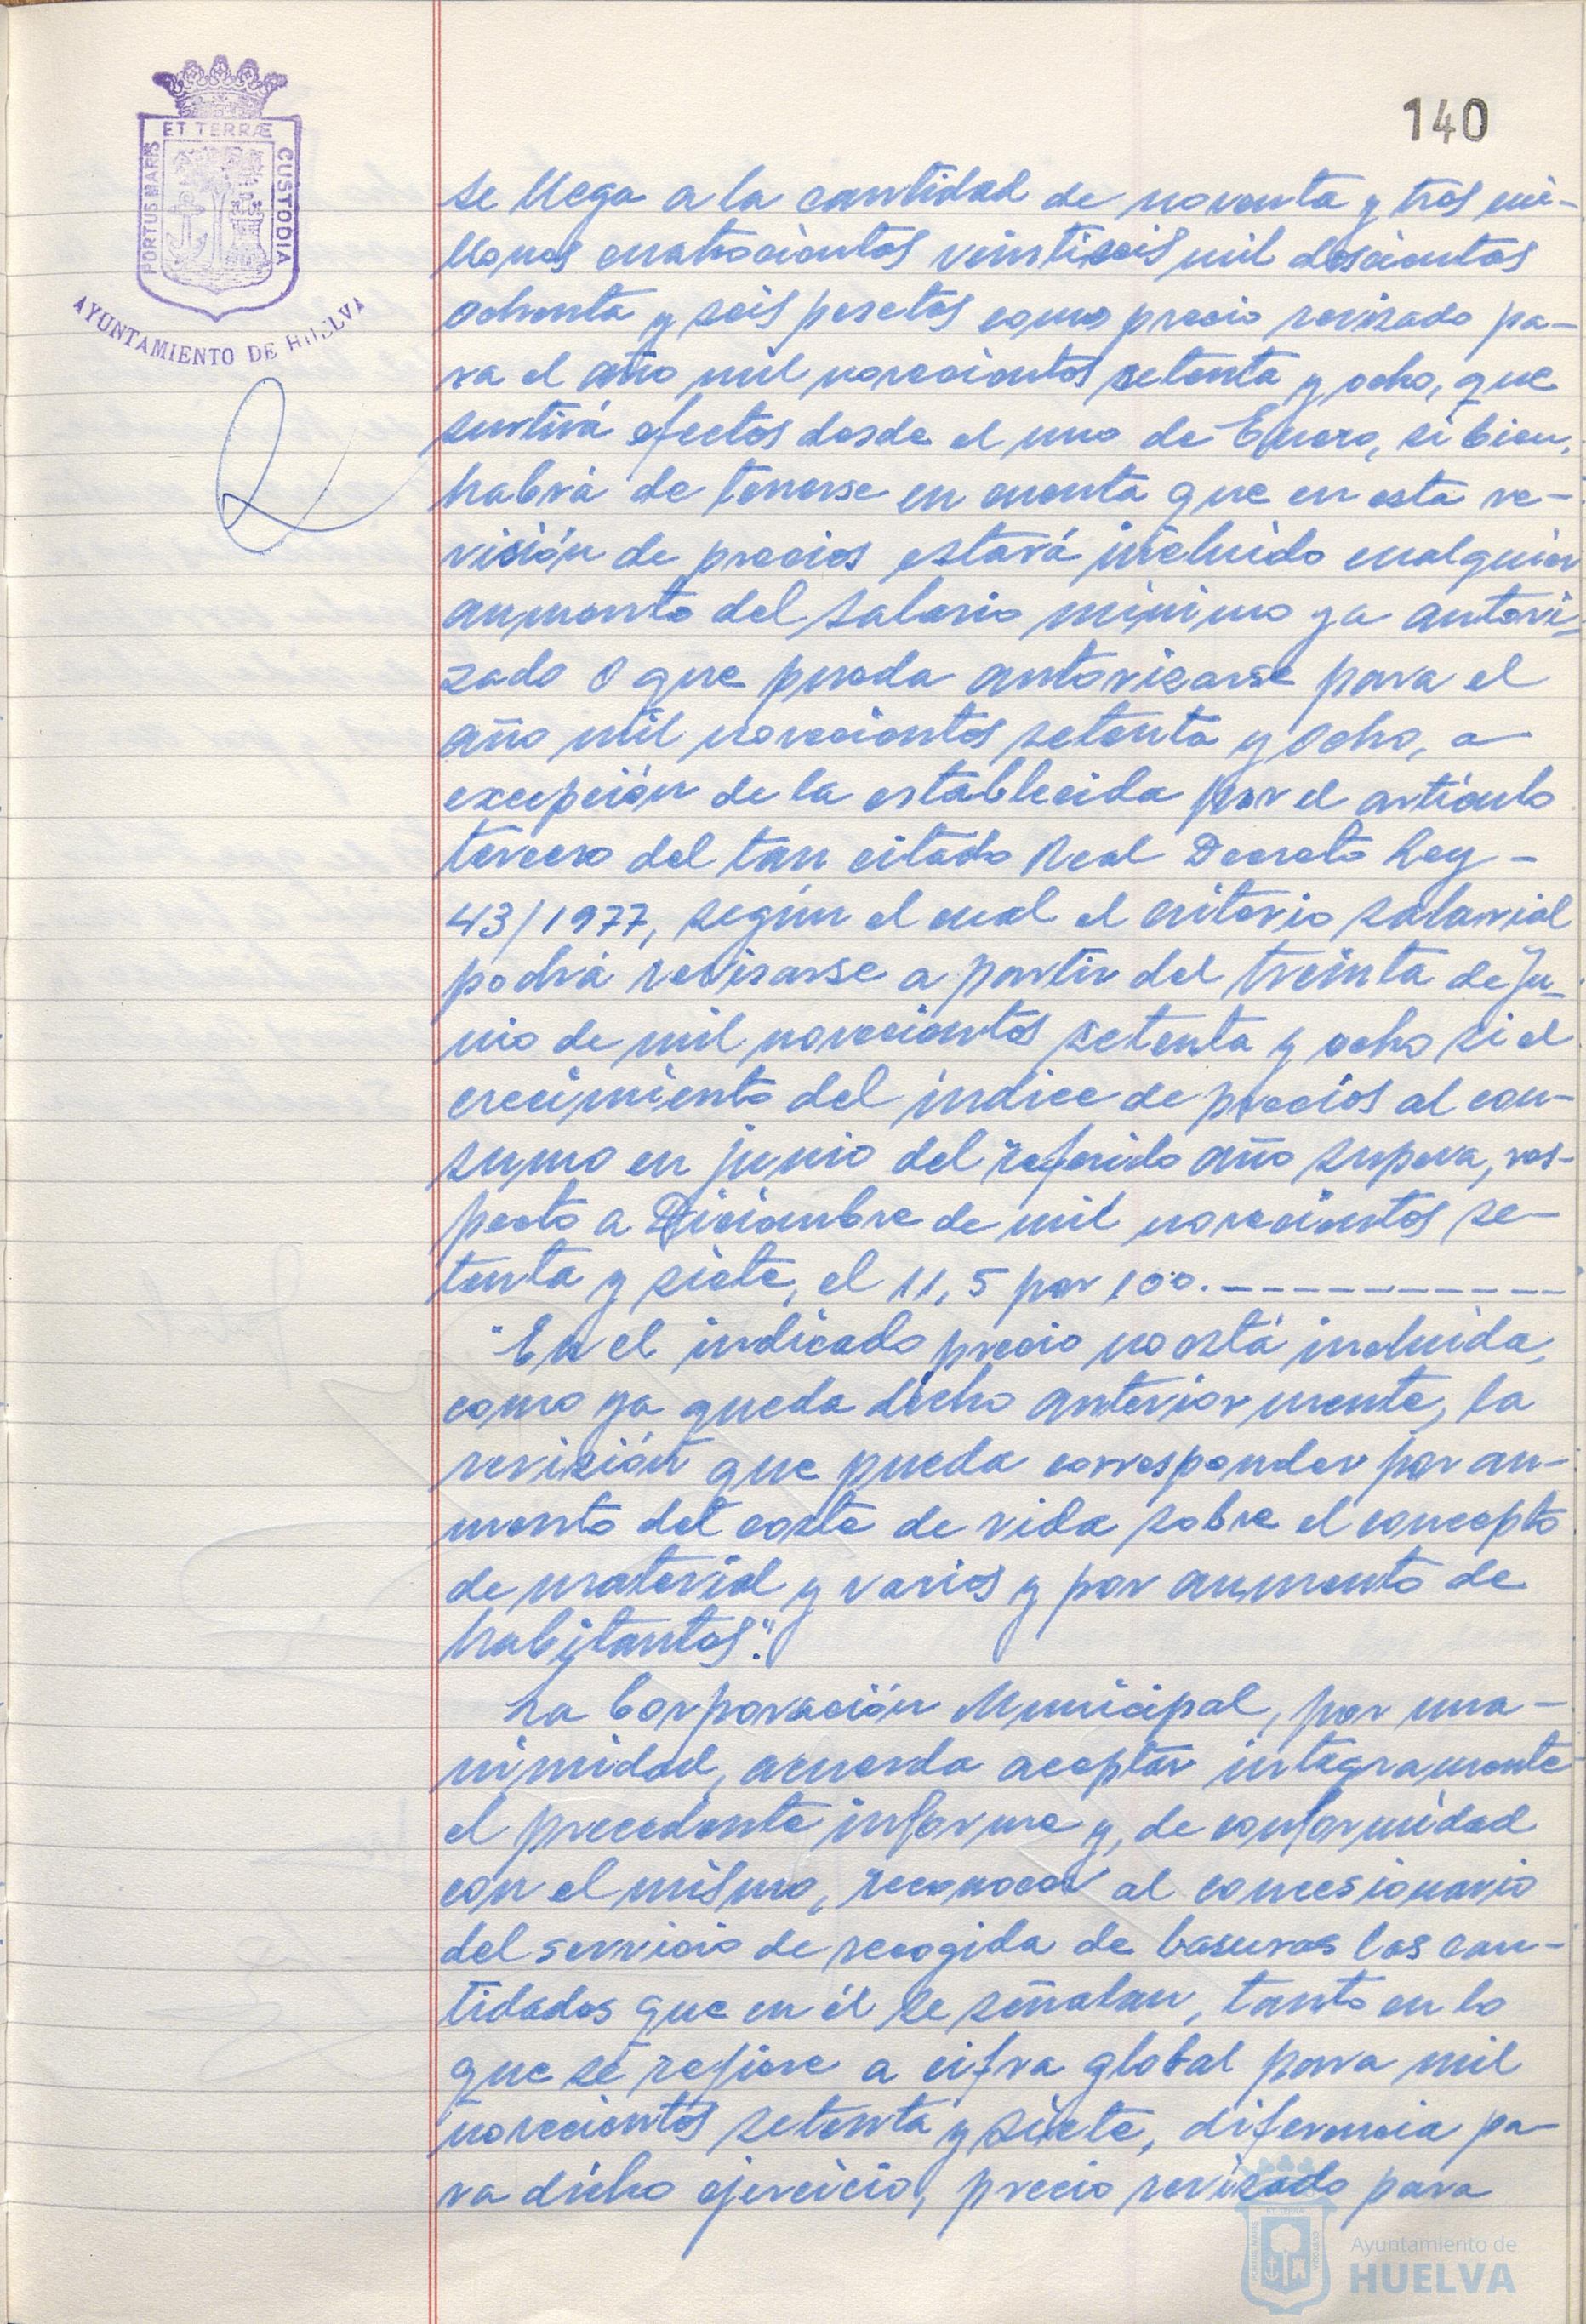 140
ET TERRÆ
PORTUS MARIS
CUSTODIA
AYUNTAMIENTO DE HUELVA
se llega a la cantidad de noventa y tres mi-
llones cuatrocientos veintiseis mil doscientas
ochenta y seis pesetas como precio revisado pa-
ra el año mil novecientos setenta y ocho, que
surtirá efectos desde el uno de Enero, si bien,
habrá de tenerse en cuenta que en esta re-
visión de precios estará incluido cualquier
aumento del salario mínimo ya autori-
zado o que pueda autorizarse para el
año mil novecientos setenta y ocho, a
excepción de la establecida por el artículo
tercero del tan citado Real Decreto Ley -
43/1977, según el cual el criterio salarial
podrá revisarse a partir del treinta de Ju-
nio de mil novecientos setenta y ocho si el
crecimiento del índice de precios al con-
sumo en junio del referido año supera, res-
pecto a Diciembre de mil novecientos se-
tenta y siete, el 11,5 por 100.-----------
"En el indicado precio no está incluida,
como ya queda dicho anteriormente, la
revisión que pueda corresponder por au-
mento del coste de vida sobre el concepto
de material y varios y por aumento de
habitantes."
La Corporación Municipal, por una-
nimidad, acuerda aceptar integramente
el precedente informe y, de conformidad
con el mismo, reconocer al concesionario
del servicio de recogida de basuras las can-
tidades que en él se señalan, tanto en lo
que se refiere a cifra global para mil
novecientos setenta y siete, diferencia pa-
ra dicho ejercicio, precio revisado para
Ayuntamiento de
HUELVA